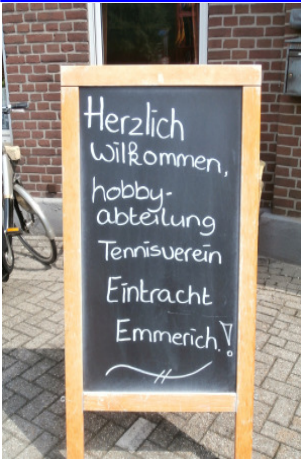 Herzlich
Wilkommen,
hobby-
abteilung
Tennisverein
Eintracht
Emmerich!